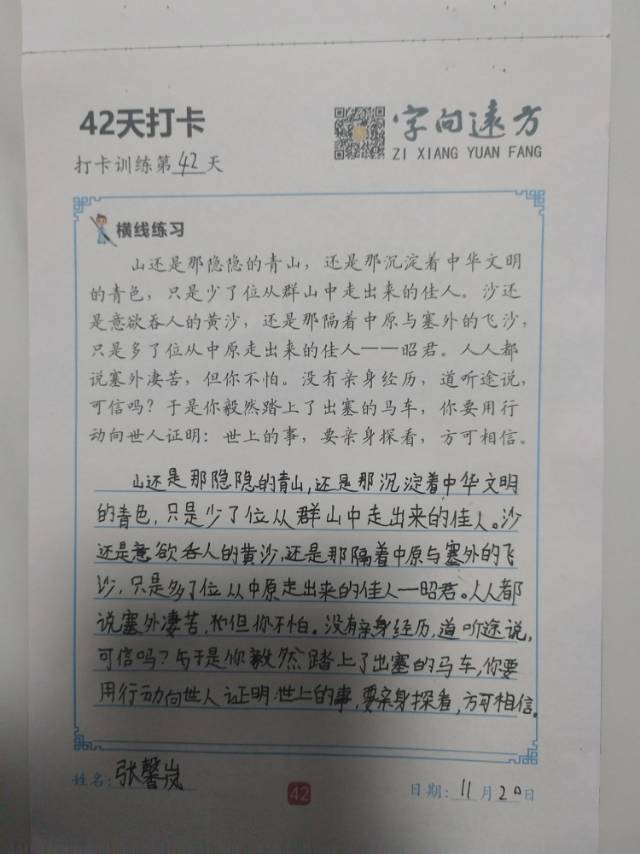 42天打卡
字向远方
ZI XIANG YUAN FANG
打卡训练第42天
横线练习
山还是那隐隐的青山，还是那沉淀着中华文明
的青色，只是少了位从群山中走出来的佳人。沙还
是意欲吞人的黄沙，还是那隔着中原与塞外的飞沙，
只是多了位从中原走出来的佳人——昭君。人人都
说塞外凄苦，但你不怕。没有亲身经历，道听途说，
可信吗？于是你毅然踏上了出塞的马车，你要用行
动向世人证明：世上的事，要亲身探看，方可相信。
山还是那隐隐的青山,还是那沉淀着中华文明
的青色,只是少了位从群山中走出来的佳人。沙
还是意欲吞人的黄沙,还是那隔着中原与塞外的飞
沙,只是多了位从中原走出来的佳人一昭君。人人都
说塞外凄苦,但你不怕。没有亲身经历,道听途说,
可信吗?于是你毅然踏上了出塞的马车,你要
用行动向世人证明:世上的事,要亲身探看,方可相信。
姓名:张馨岚
42
日期:11月20日